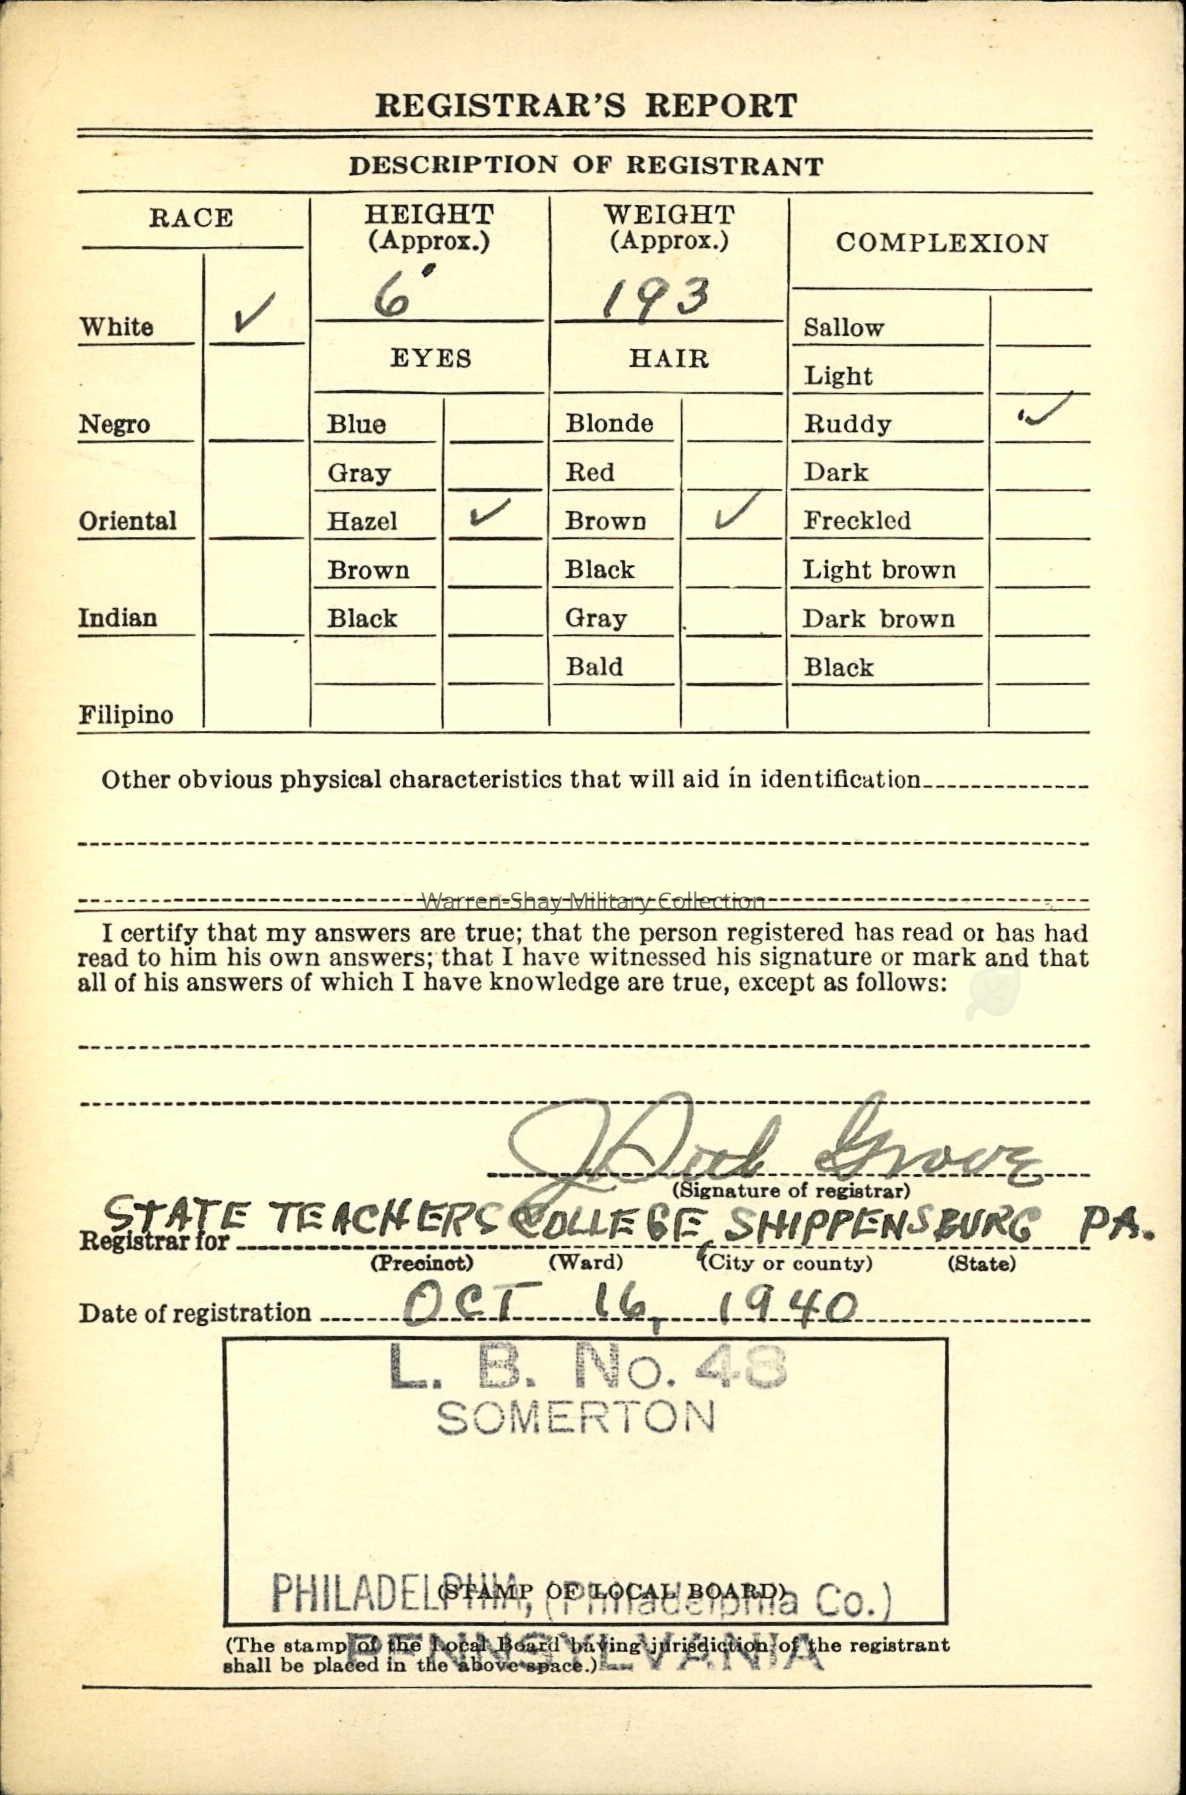 REGISTRAR'S REPORT
DESCRIPTION OF REGISTRANT
RACE
HEIGHT
(Approx.)
WEIGHT
(Approx.)
COMPLEXION
6'
193
White ✓
Sallow
EYES
HAIR
Light
Negro
Blue
Blonde
Ruddy ✓
Gray
Red
Dark
Oriental
Hazel ✓
Brown ✓
Freckled
Brown
Black
Light brown
Indian
Black
Gray
Dark brown
Bald
Black
Filipino
Other obvious physical characteristics that will aid in identification
Warren-Shay Military Collection
I certify that my answers are true; that the person registered has read or has had
read to him his own answers; that I have witnessed his signature or mark and that
all of his answers of which I have knowledge are true, except as follows:
J Grove
(Signature of registrar)
STATE TEACHERS COLLEGE, SHIPPENSBURG PA.
Registrar for
(Precinct) (Ward) (City or county) (State)
Date of registration OCT 16, 1940
L. B. No. 48
SOMERTON
PHILADELPHIA, (Philadelphia Co.)
(STAMP OF LOCAL BOARD)
PENNSYLVANIA
(The stamp of the Local Board having jurisdiction of the registrant
shall be placed in the above space.)